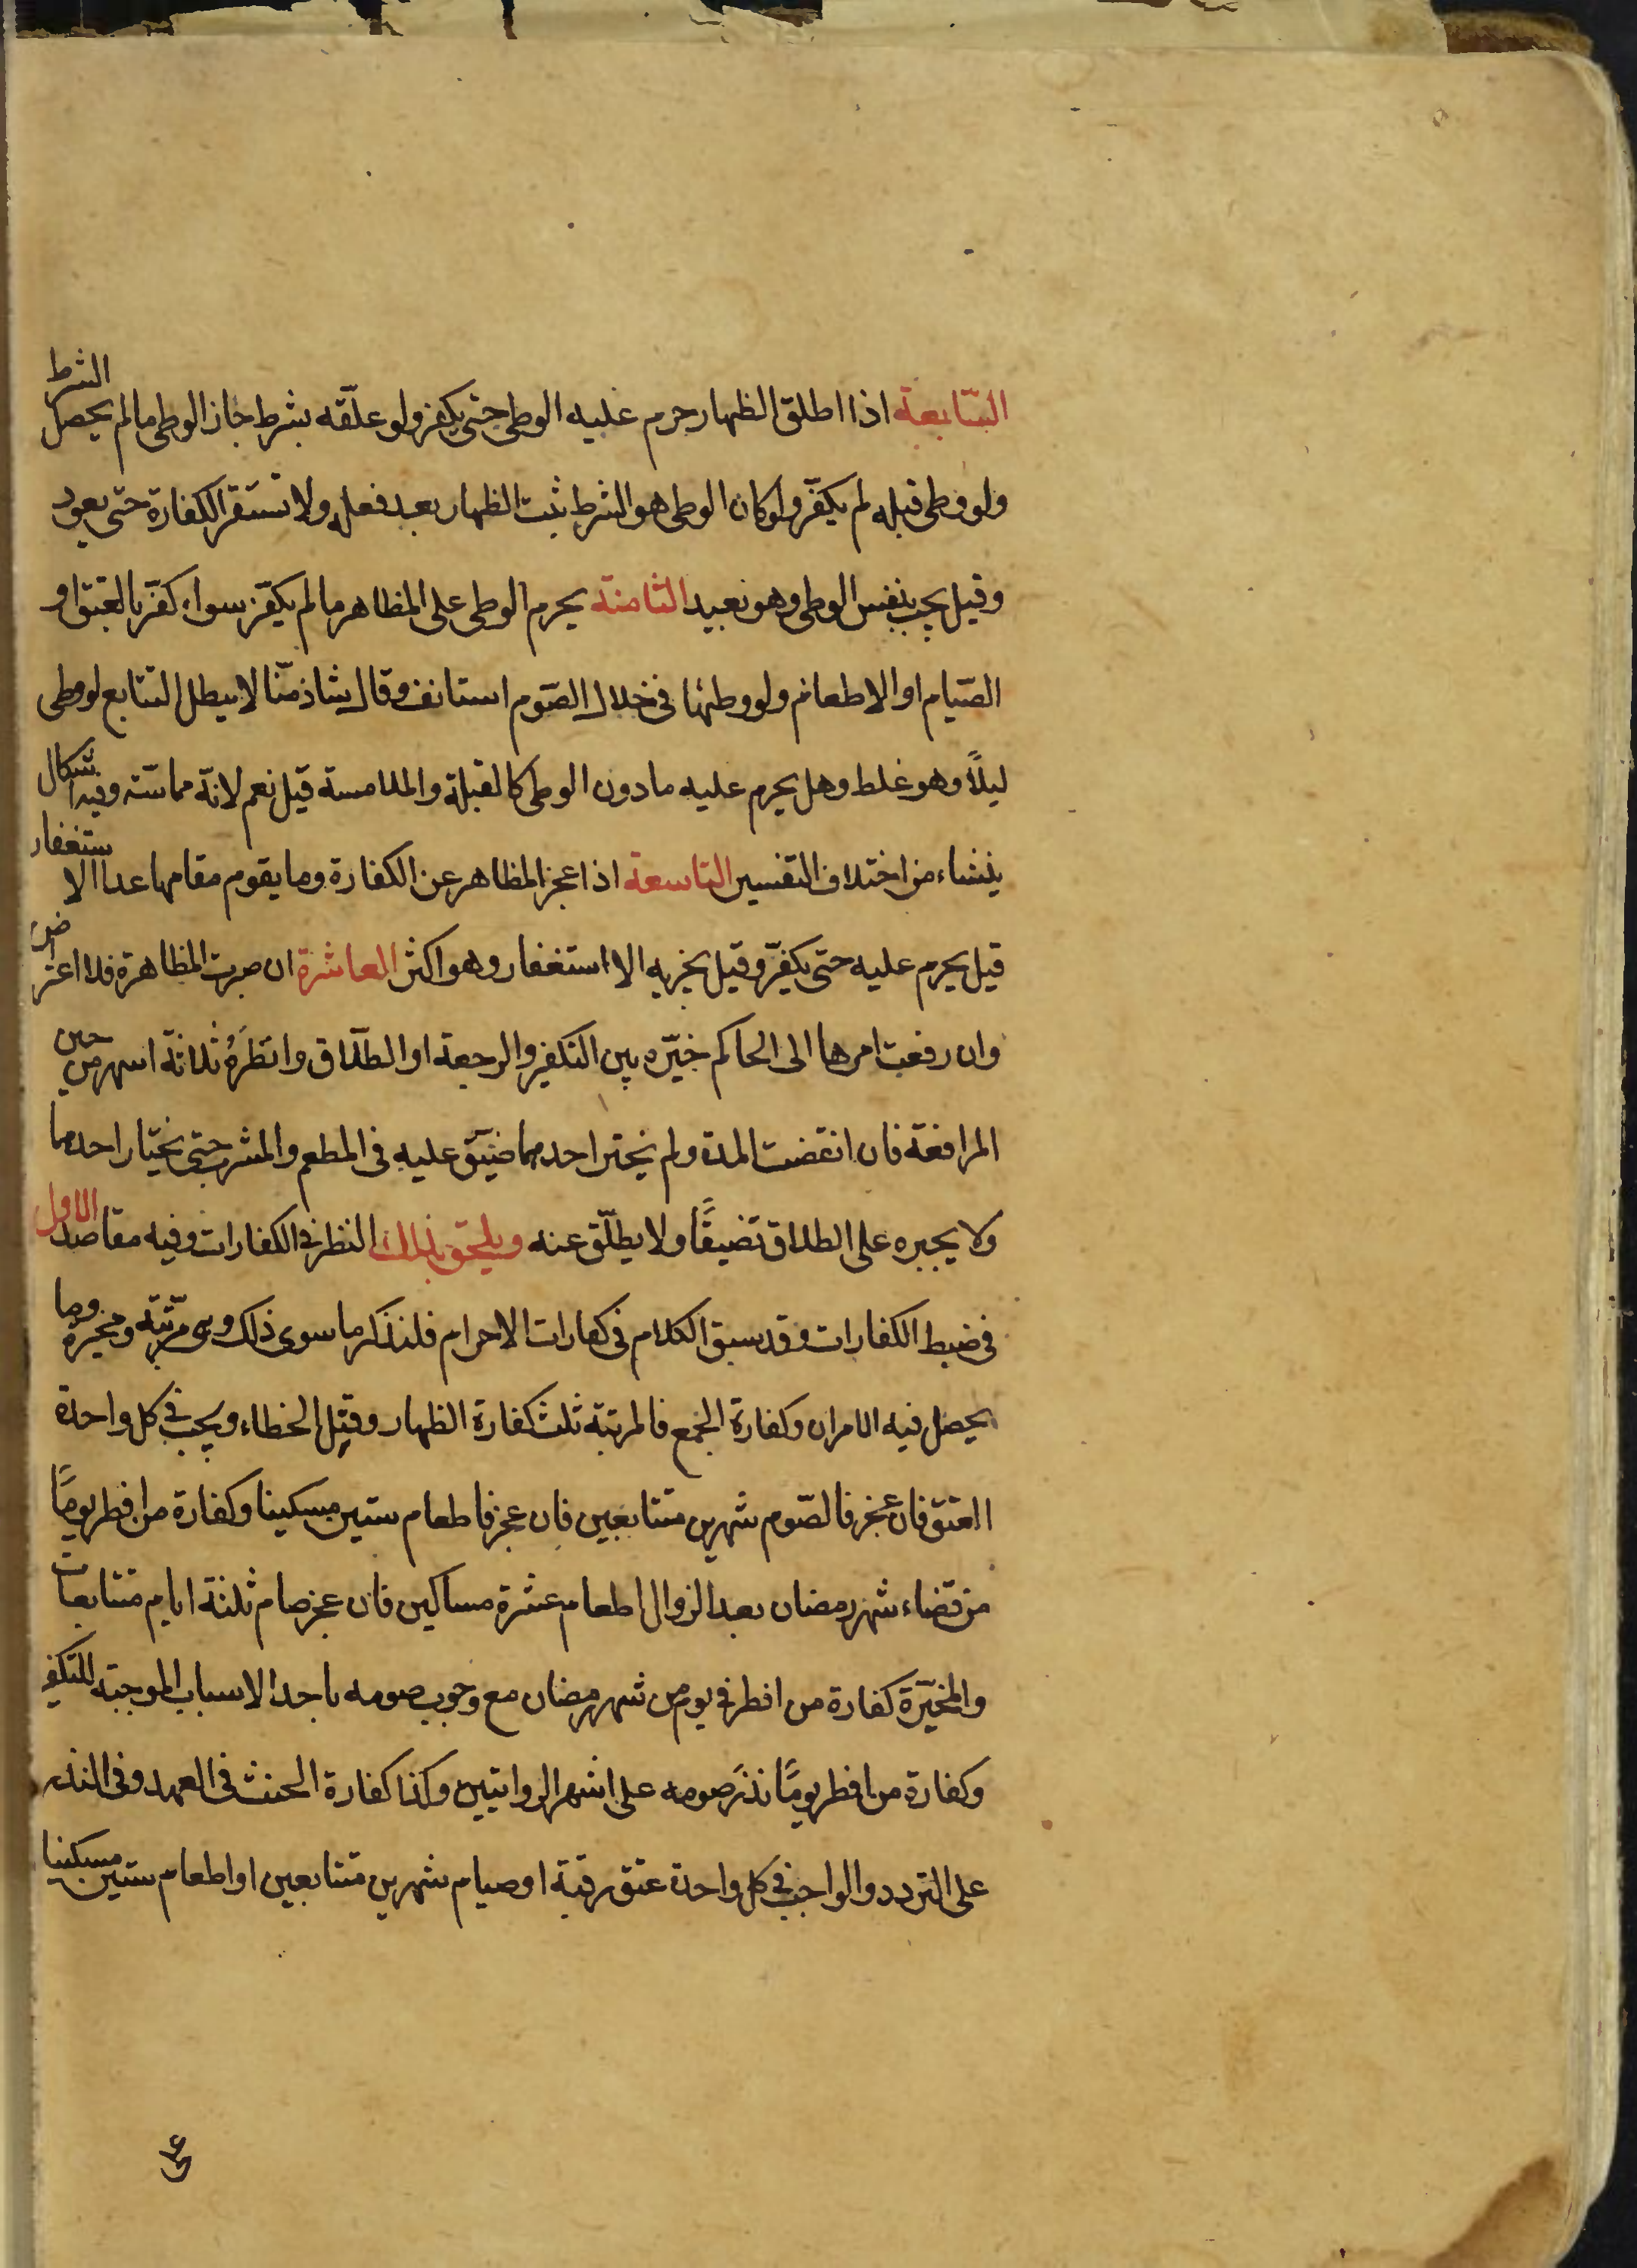 السّابعة اذا اطلق الظهار حرم عليه الوطى حتى يكفر ولو علّقه بشرط جاز الوطى مالم يحصل الشرط
ولو وطى قبله لم يكفّر ولو كان الوطى هو الشرط ثبت الظهار بعد فعله ولا تستقر الكفارة حتى يعود
وقيل يجب بنفس الوطى وهو بعيد الثامنة يحرم الوطى على المظاهر مالم يكفّر سواء كفّر بالعتق او
الصّيام او الاطعام ولو وطئها فى خلال الصّوم استانف وقال شاذ منّا لا يبطل التتابع لو وطى
ليلاً وهو غلط وهل يحرم عليه مادون الوطى كالقبلة والملامسة قيل نعم لانّه مماسّة وفيه اشكال
ينشاء من اختلاف التفسير التاسعة اذا عجز المظاهر عن الكفارة وما يقوم مقامها عدا الاستغفار
قيل يحرم عليه حتى يكفّر وقيل يجزيه الا استغفار وهو اكثر العاشرة ان صبرت المظاهرة فلا اعتراض
وان رفعت امرها الى الحاكم خيّره بين التكفير والرجعة او الطلاق وانظرَهُ ثلاثة اشهر من حين
المرافعة فان انقضت المدة ولم يختر احدهما ضيّق عليه فى المطعم والمشرب حتى يختار احدهما
ولا يجبره على الطلاق تضيقًا ولا يطلّق عنه ويلحق بذلك النظر فى الكفارات وفيه مقاصد الاول
فى ضبط الكفارات وقد سبق الكلام فى كفارات الاحرام فلنذكر ما سوى ذلك وهى مرتّبة ومخيرة وما
يحصل فيه الامران وكفارة الجمع فالمرتبة ثلث كفارة الظهار وقتل الخطاء ويجب فى كل واحدة
العتق فان عجز فالصّوم شهرين متتابعين فان عجز فاطعام ستين مسكينا وكفارة من افطر يومًا
من قضاء شهر رمضان بعد الزوال اطعام عشرة مساكين فان عجز صام ثلثة ايام متتابعات
والمخيّرة كفارة من افطر فى يوم من شهر رمضان مع وجوب صومه باحد الاسباب الموجبة للتكفير
وكفارة من افطر يومًا نذر صومه على اشهر الروايتين وكذا كفارة الحنث فى العهد وفى النذر
على التردد والواجب فى كل واحدة عتق رقبة او صيام شهرين متتابعين او اطعام ستين مسكينا